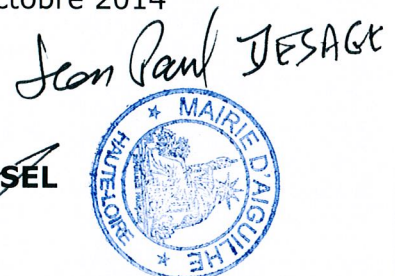 octobre 2014
Jean Paul DESAGE
SEL
MAIRIE D'AIGUILHE
HAUTE-LOIRE